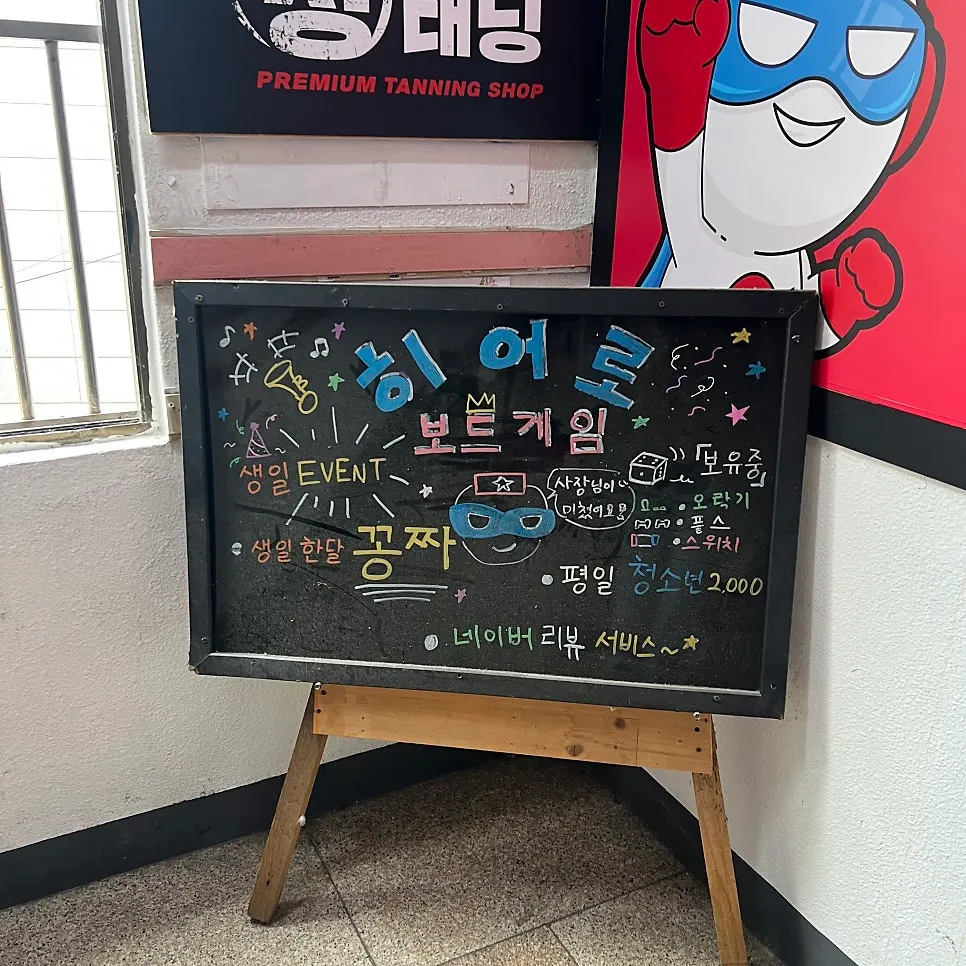 태닝
PREMIUM TANNING SHOP
히어로
보드게임
생일 EVENT
생일 한달 꽁짜
사장님이
미쳤어요
「보유중」
오락기
플스
스위치
평일 청소년 2,000
네이버 리뷰 서비스~